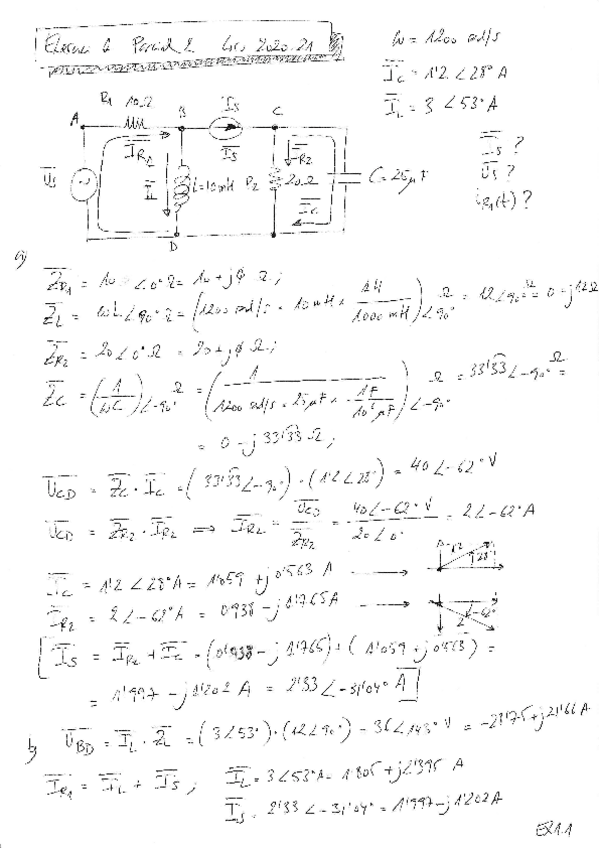 Parcial 2 2020-21
ω = 1200 rad/s
I̅c = 1'2 ∠28° A
I̅L = 3 ∠53° A
I̅s ?
U̅s ?
iR1(t) ?
R1 10Ω
A B I̅s C
U̅s I̅R1 I̅L L=10mH I̅s R2 I̅R2 20Ω I̅c C=25μF
D
a)
Z̅R1 = 10 ∠0° Ω = 10 + jφ Ω;
Z̅L = ωL ∠90° Ω = (1200 rad/s · 10 mH × 1H / 1000 mH) ∠90° Ω = 12∠90° Ω = 0 - j12Ω
Z̅R2 = 20∠0° Ω = 20 + jφ Ω;
Z̅c = (1 / ωC) ∠-90° Ω = (1 / 1200 rad/s × 25μF × 1F / 10⁶μF) ∠-90° Ω = 33'33 ∠-90° Ω =
= 0 - j 33'33 Ω;
U̅CD = Z̅c · I̅c = (33'33 ∠-90°) · (1'2 ∠28°) = 40∠-62° V
U̅CD = Z̅R2 · I̅R2 ⟹ I̅R2 = U̅CD / Z̅R2 = 40∠-62° V / 20∠0° = 2∠-62° A
I̅c = 1'2 ∠28° A = 1'059 + j0'563 A → 1'2 28°
I̅R2 = 2∠-62° A = 0'938 - j1'765 A → 2 -62°
I̅s = I̅R2 + I̅c = (0'938 - j1'765) + (1'059 + j0'563) =
= 1'997 - j1'202 A = 2'33 ∠-31'04° A
b) U̅BD = I̅L · Z̅L = (3∠53°) · (12∠90°) = 36∠143° V = -28'75 + j21'66 A
I̅R1 = I̅L + I̅s ; I̅L = 3∠53° A = 1'805 + j2'395 A
I̅s = 2'33 ∠-31'04° = 1'997 - j1'202 A
E21.1